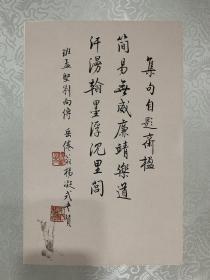 集句自題齋楹
簡易無威廉靖樂道
汗漫翰墨浮沉里閭
班孟堅劉向傳 岳倦翁楊凝式書贊